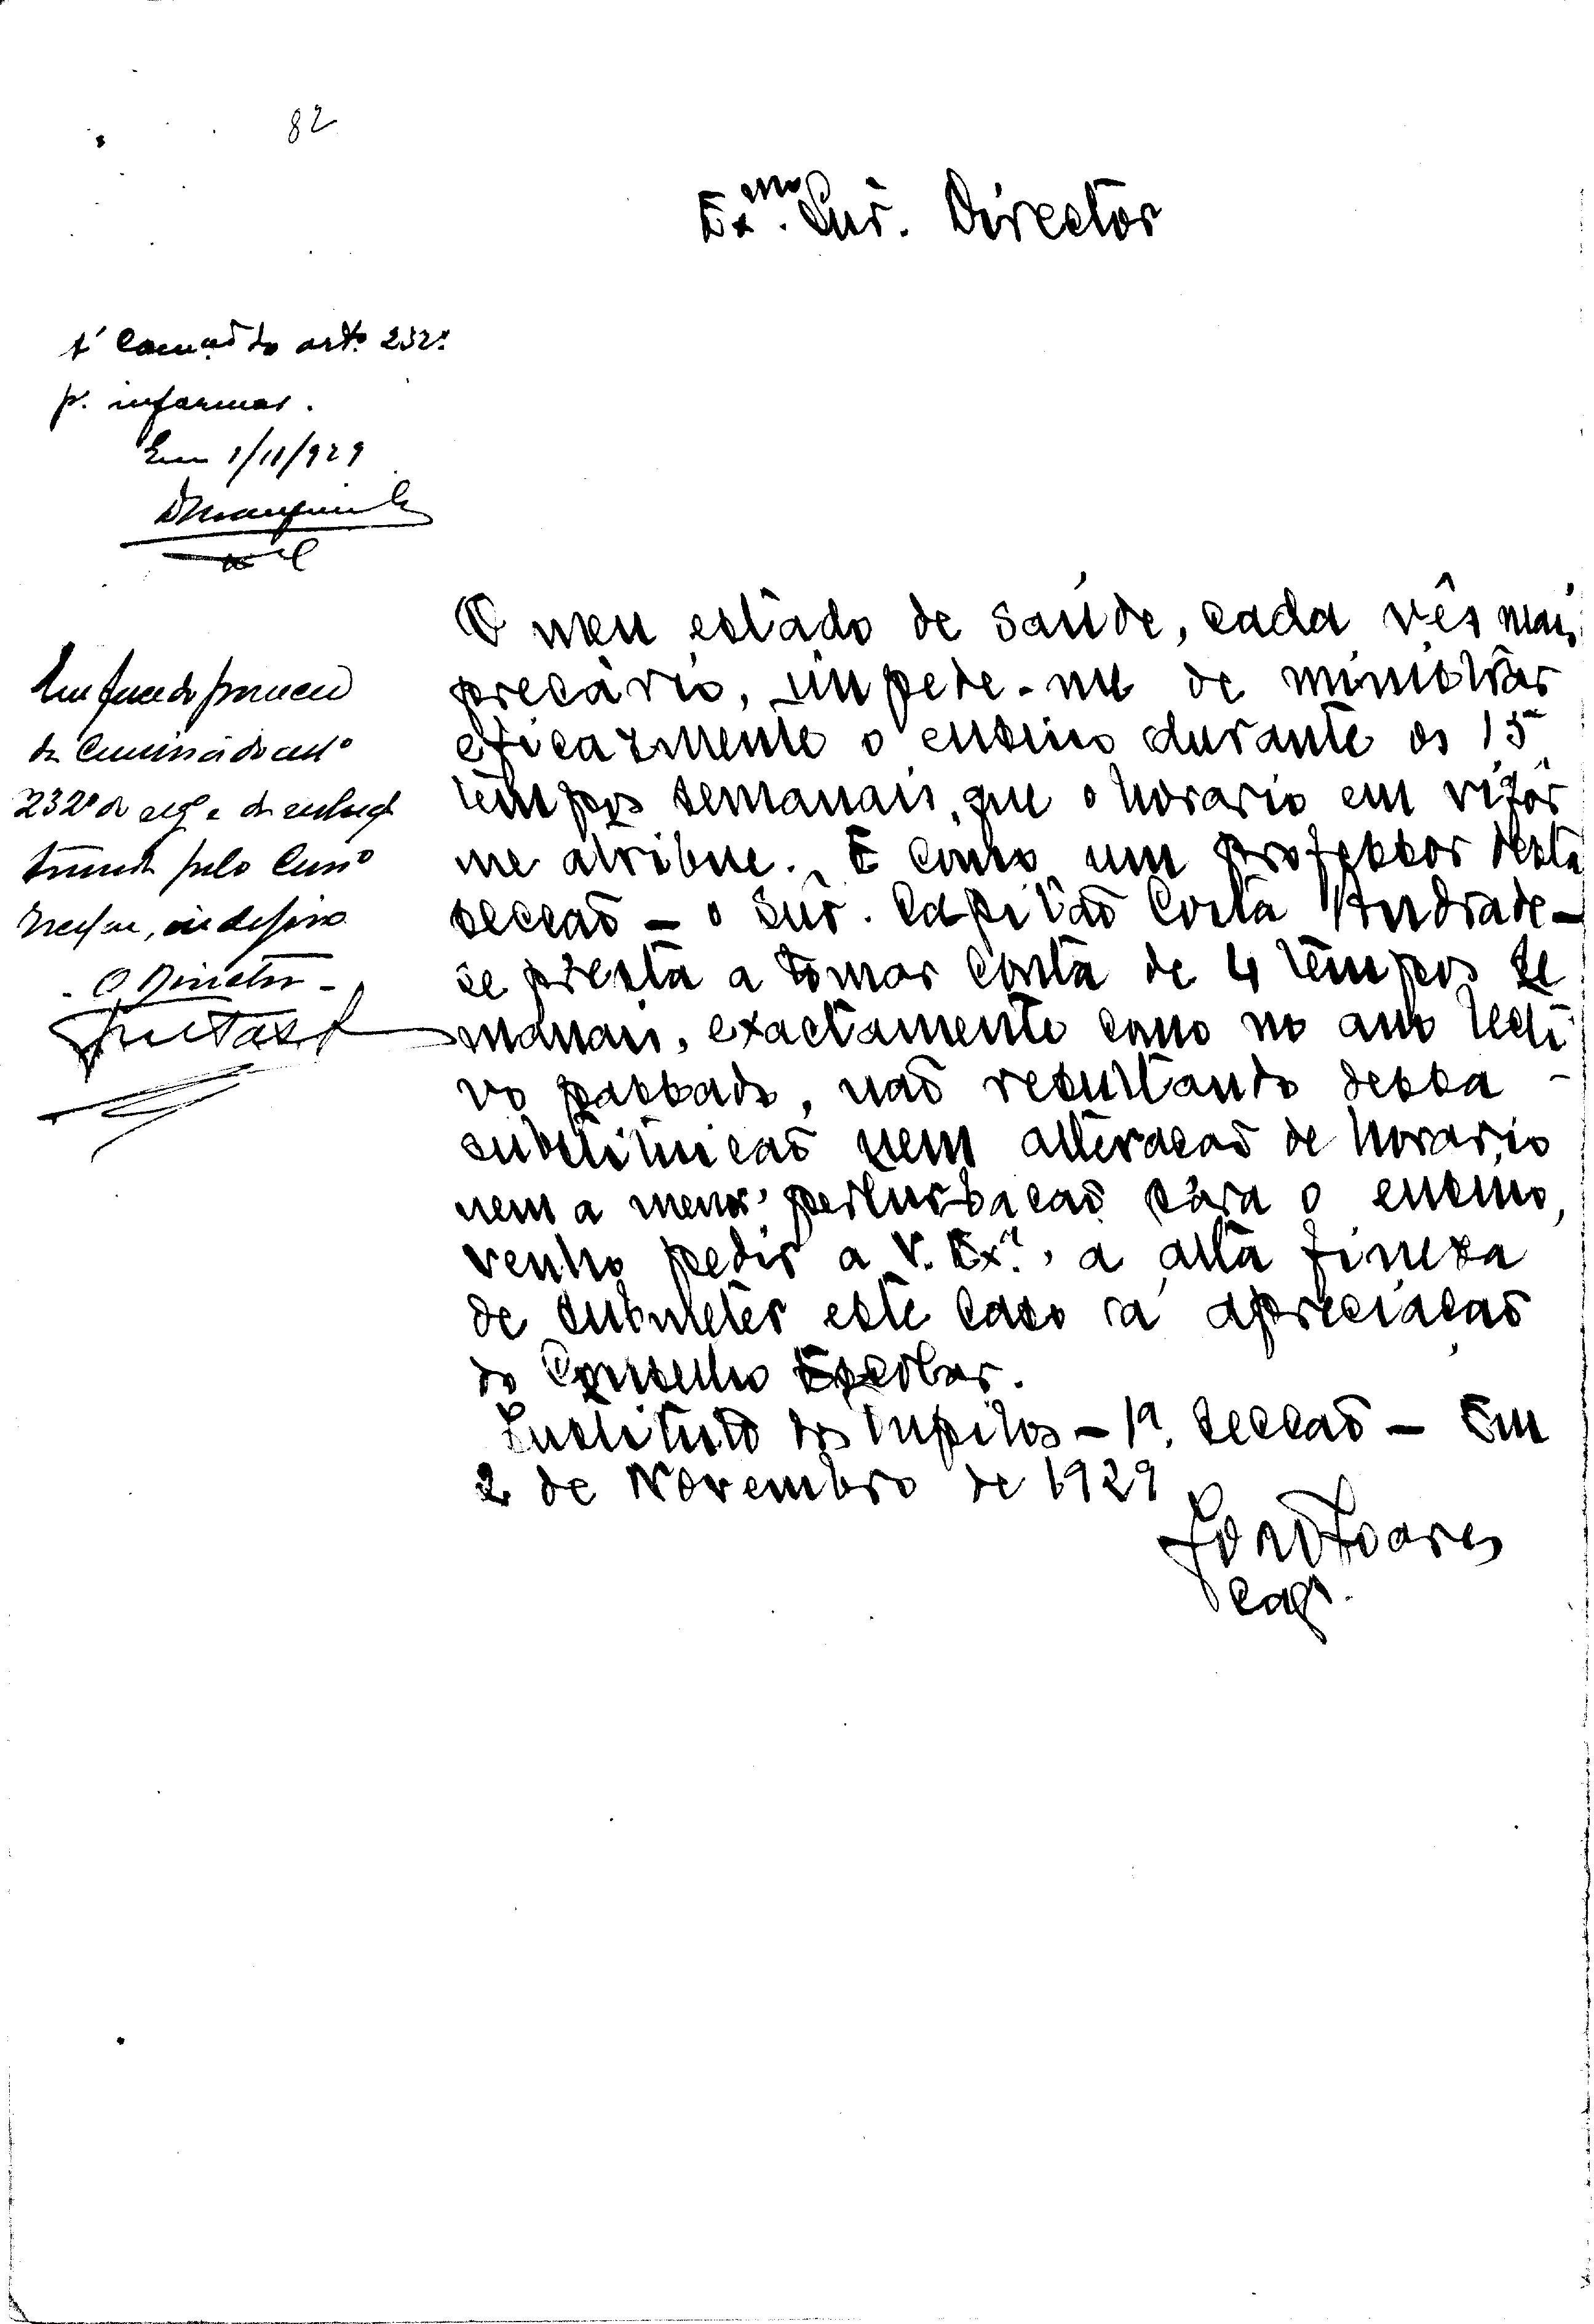 82
Exmo. Snr. Director
á Comão do arto. 232º
p. informar.
Em 1/11/929
Em face do parecer
da Comissão do arto
232º do reg. e da
tomada pelo Conso
indefiro
O Director
O meu estado de saúde, cada vês mais
precário, impede-me de ministrar
eficazmente o ensino durante os 15
tempos semanais, que o horario em vigôr
me atribue. E como um professor desta
secção – o Snr. Capitão Costa Andrade –
se presta a tomar conta de 4 tempos se
manais, exactamente como no ano lecti
vo passado, não resultando dessa
substituição nem alteração de horario
nem a menor perturbação para o ensino,
venho pedir a V. Exª. a alta fineza
de submeter este caso á apreciação
do Conselho Escolar.
Instituto dos Pupilos – 1ª. Secção – Em
2 de Novembro de 1929
Soares
Cap.